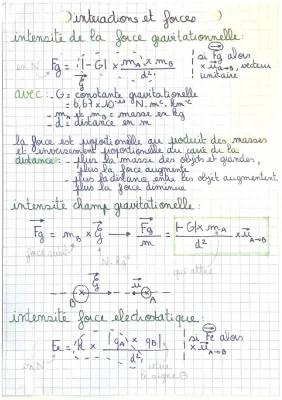 ) interactions et forces (
intensité de la force gravitationnelle:
en N Fg = |-G| × mA × mB / d² | si Fg alors × u A→B, vecteur unitaire
avec: - G = constante gravitationelle
= 6,67×10⁻¹¹ N.m².km⁻²
- mA et mB = masse en kg
- d = distance en m
la force est proportionelle au produit des masses
et inversement proportionelle du carré de la
distance: - plus la masse des objets est grandes,
plus la force augmente
- plus la distance entre les objet augmentent
plus la force diminue
intensité champ gravitationelle:
Fg = mB × G → Fg / m = |-G| × mA / d² × u A→B
N.kg⁻¹
qui attire
B G u A
intensité force electrostatique:
en N Fe = k × |qA × qB| / d² | si Fe alors × u A→B